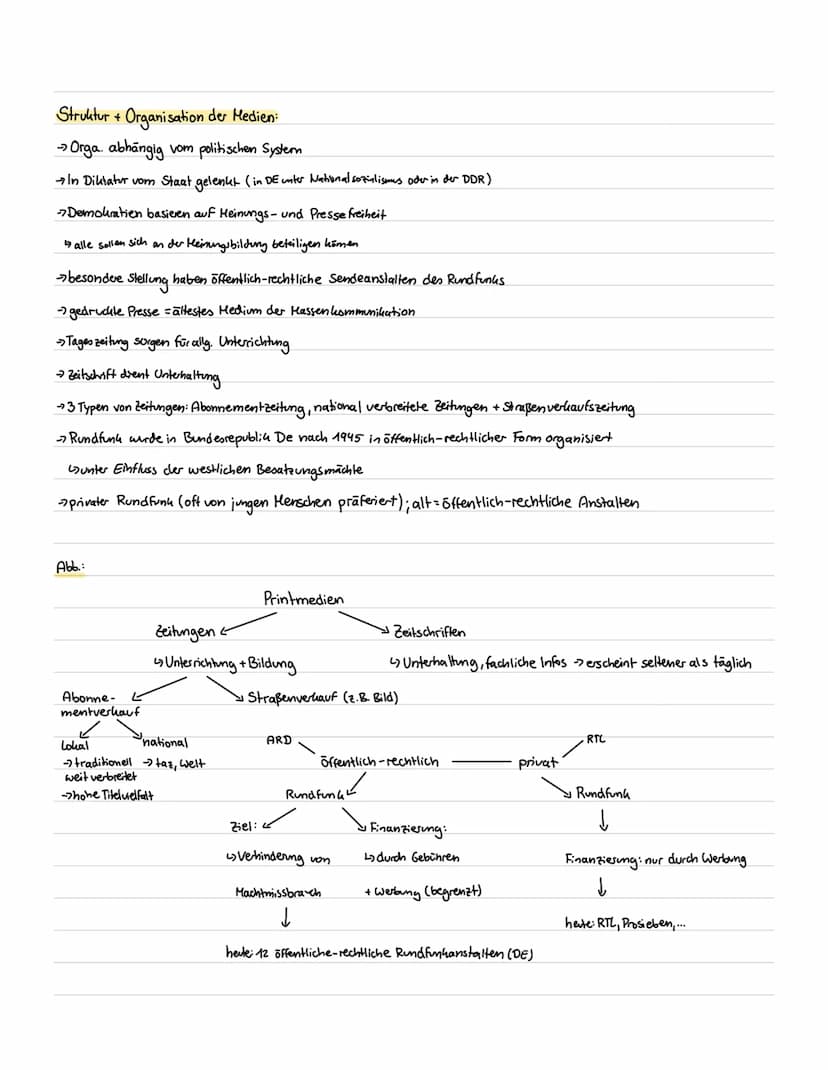 Struktur + Organisation der Medien:
→ Orga. abhängig vom politischen System
→ In Diktatur vom Staat gelenkt (in DE unter Nationalsozialismus oder in der DDR)
→ Demokratien basieren auf Meinungs- und Pressefreiheit
↳ alle sollen sich an der Meinungsbildung beteiligen können
→ besondere Stellung haben öffentlich-rechtliche Sendeanstalten des Rundfunks
→ gedruckte Presse = ältestes Medium der Massenkommunikation
→ Tageszeitung sorgen für allg. Unterrichtung
→ Zeitschrift dient Unterhaltung
→ 3 Typen von Zeitungen: Abonnementzeitung, national verbreitete Zeitungen + Straßenverkaufszeitung
→ Rundfunk wurde in Bundesrepublik De nach 1945 in öffentlich-rechtlicher Form organisiert
↳ unter Einfluss der westlichen Besatzungsmächte
→ privater Rundfunk (oft von jungen Menschen präferiert); alt = öffentlich-rechtliche Anstalten
Abb.:
Printmedien
Zeitungen Zeitschriften
↳ Unterrichtung + Bildung ↳ Unterhaltung, fachliche Infos → erscheint seltener als täglich
Abonne- Straßenverkauf (z.B. Bild)
mentverkauf
Lokal national ARD RTL
→ traditionell → taz, Welt öffentlich-rechtlich privat
weit verbreitet
→ hohe Titelvielfalt Rundfunk Rundfunk
Ziel: Finanzierung:
↳ Verhinderung von ↳ durch Gebühren Finanzierung: nur durch Werbung
Machtmissbrauch + Werbung (begrenzt)
heute: RTL, Prosieben,...
heute: 12 öffentliche-rechtliche Rundfunkanstalten (DE)